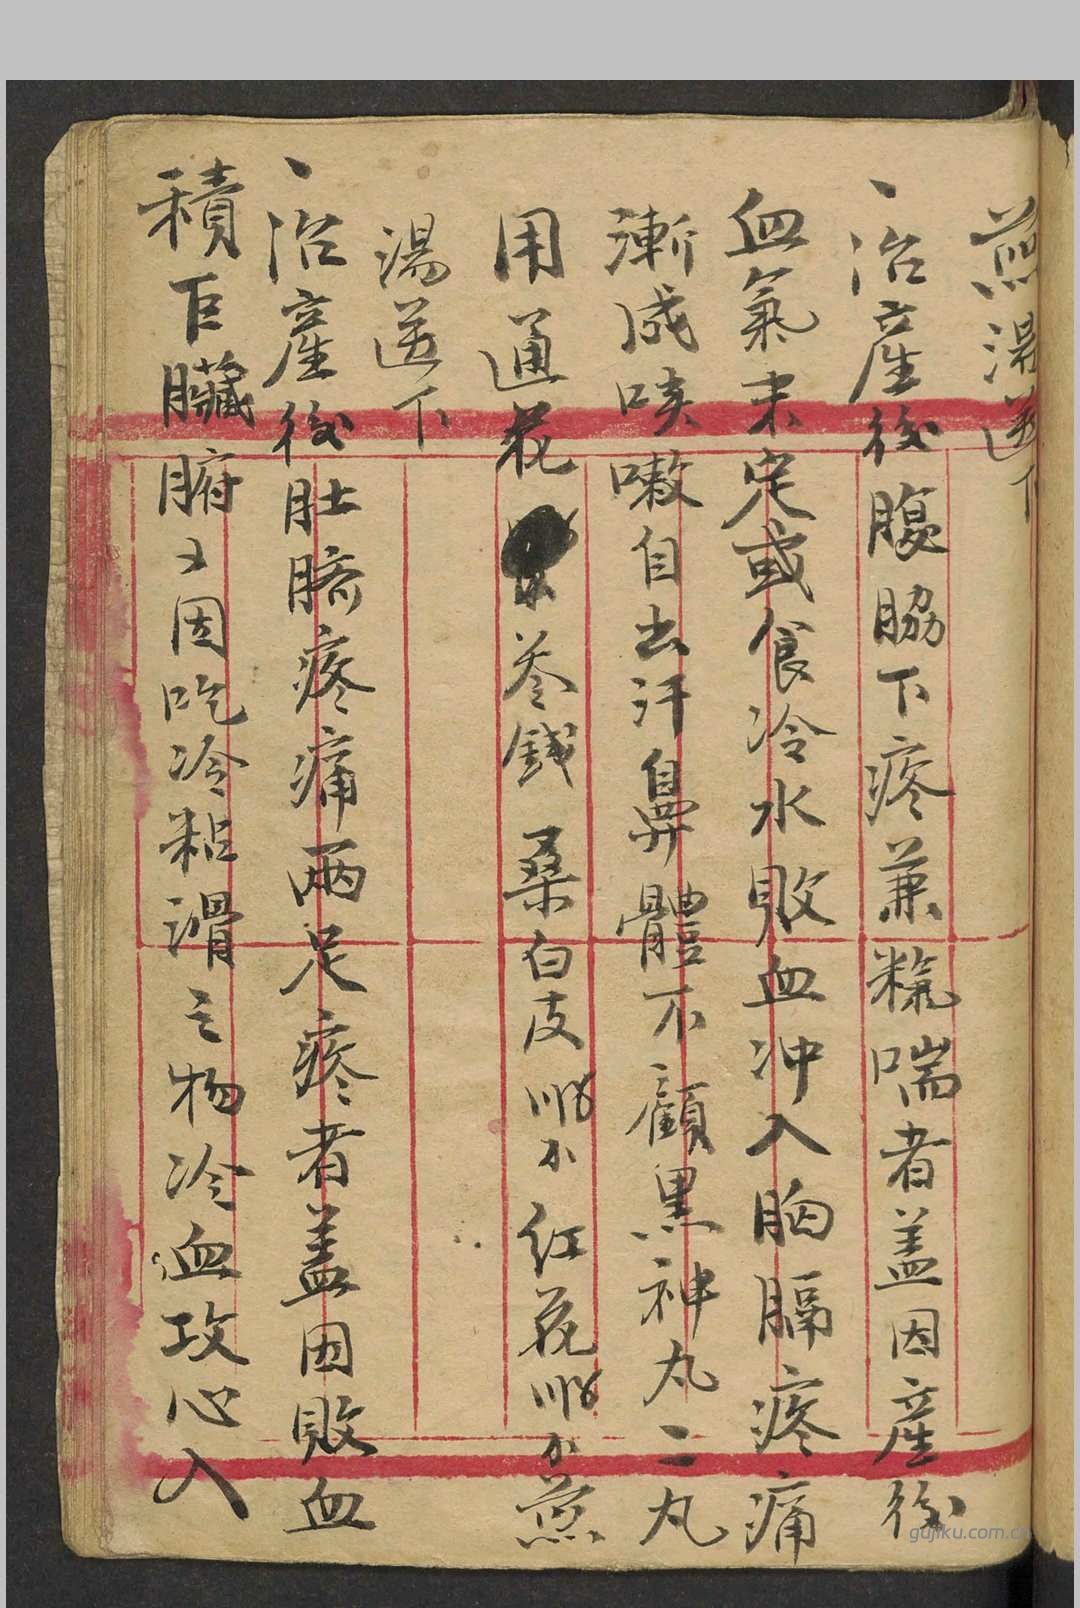 煎湯送下
、治產後腹脇下疼兼氣喘者盖因產後
血氣未定或食冷水敗血冲入胸膈疼痛
漸成咳嗽自出汗鼻體不顧黑神丸二丸
用通花 叁錢 桑白皮 〣〥 小紅花〣〥 煎
湯送下
、治產後肚臍疼痛兩足疼者盖因敗血
積巨臟腑又因吃冷粗滑之物冷血攻心入
gujiku.com.cn